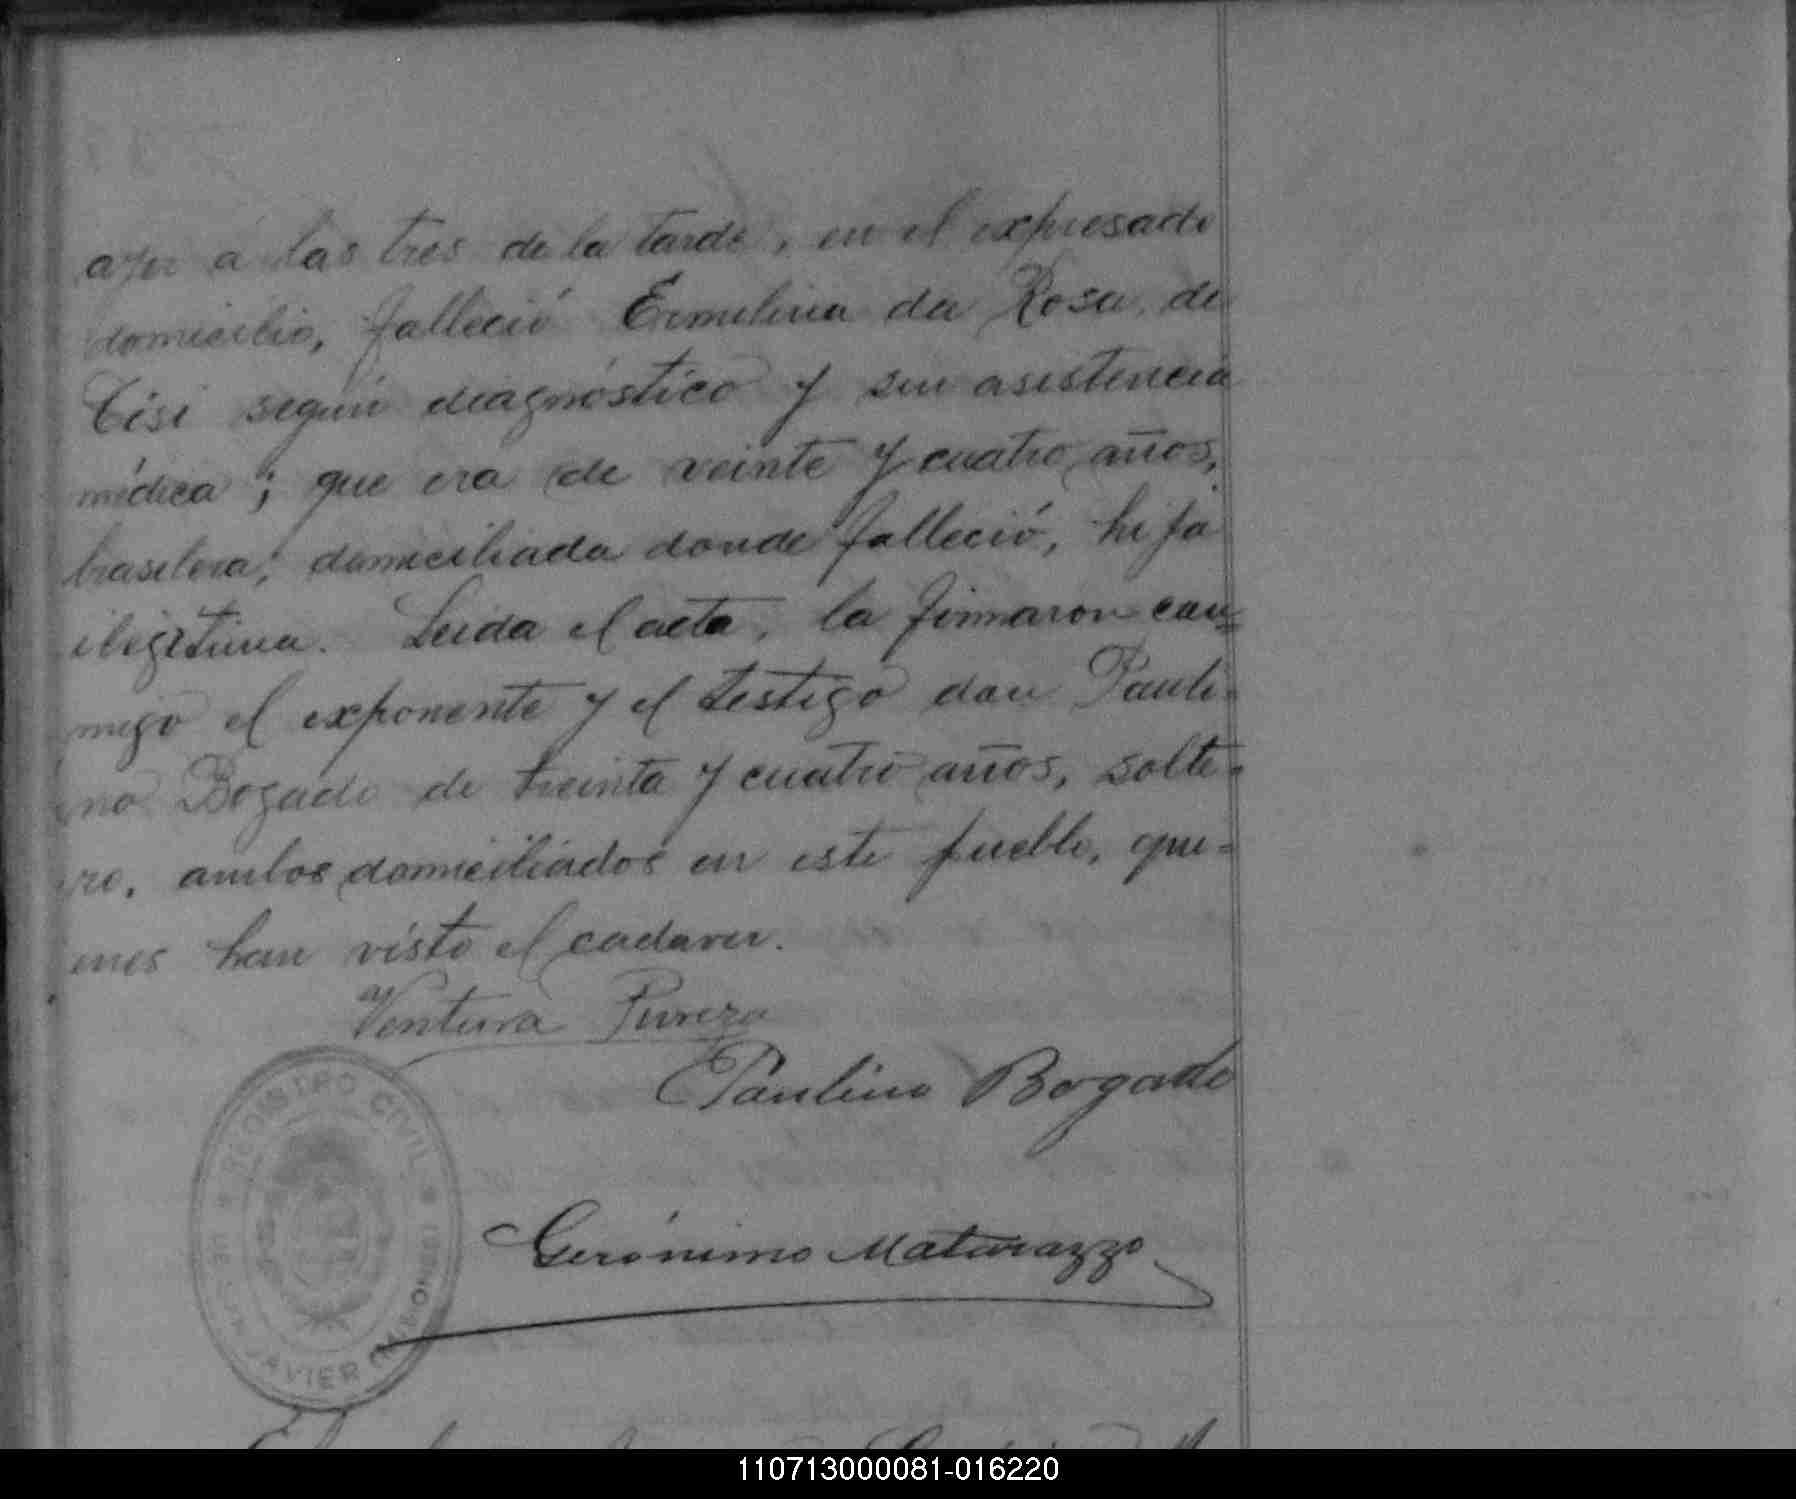 ayer á las tres de la tarde, en el expresado
domicilio, falleció Ermelina da Rosa, de
tisi según diagnóstico y sin asistencia
médica; que era de veinte y cuatro años,
brasilera, domiciliada donde falleció, hija
ilegítima. Leida el acta, la firmaron con=
migo el exponente y el testigo don Pauli=
no Bogado de treinta y cuatro años, solte=
ro, ambos domiciliados en este pueblo, qui=
enes han visto el cadaver.
Ventura
Paulino Bogado
REGISTRO CIVIL
DE SAN JAVIER
Gerónimo Matarazzo
110713000081-016220